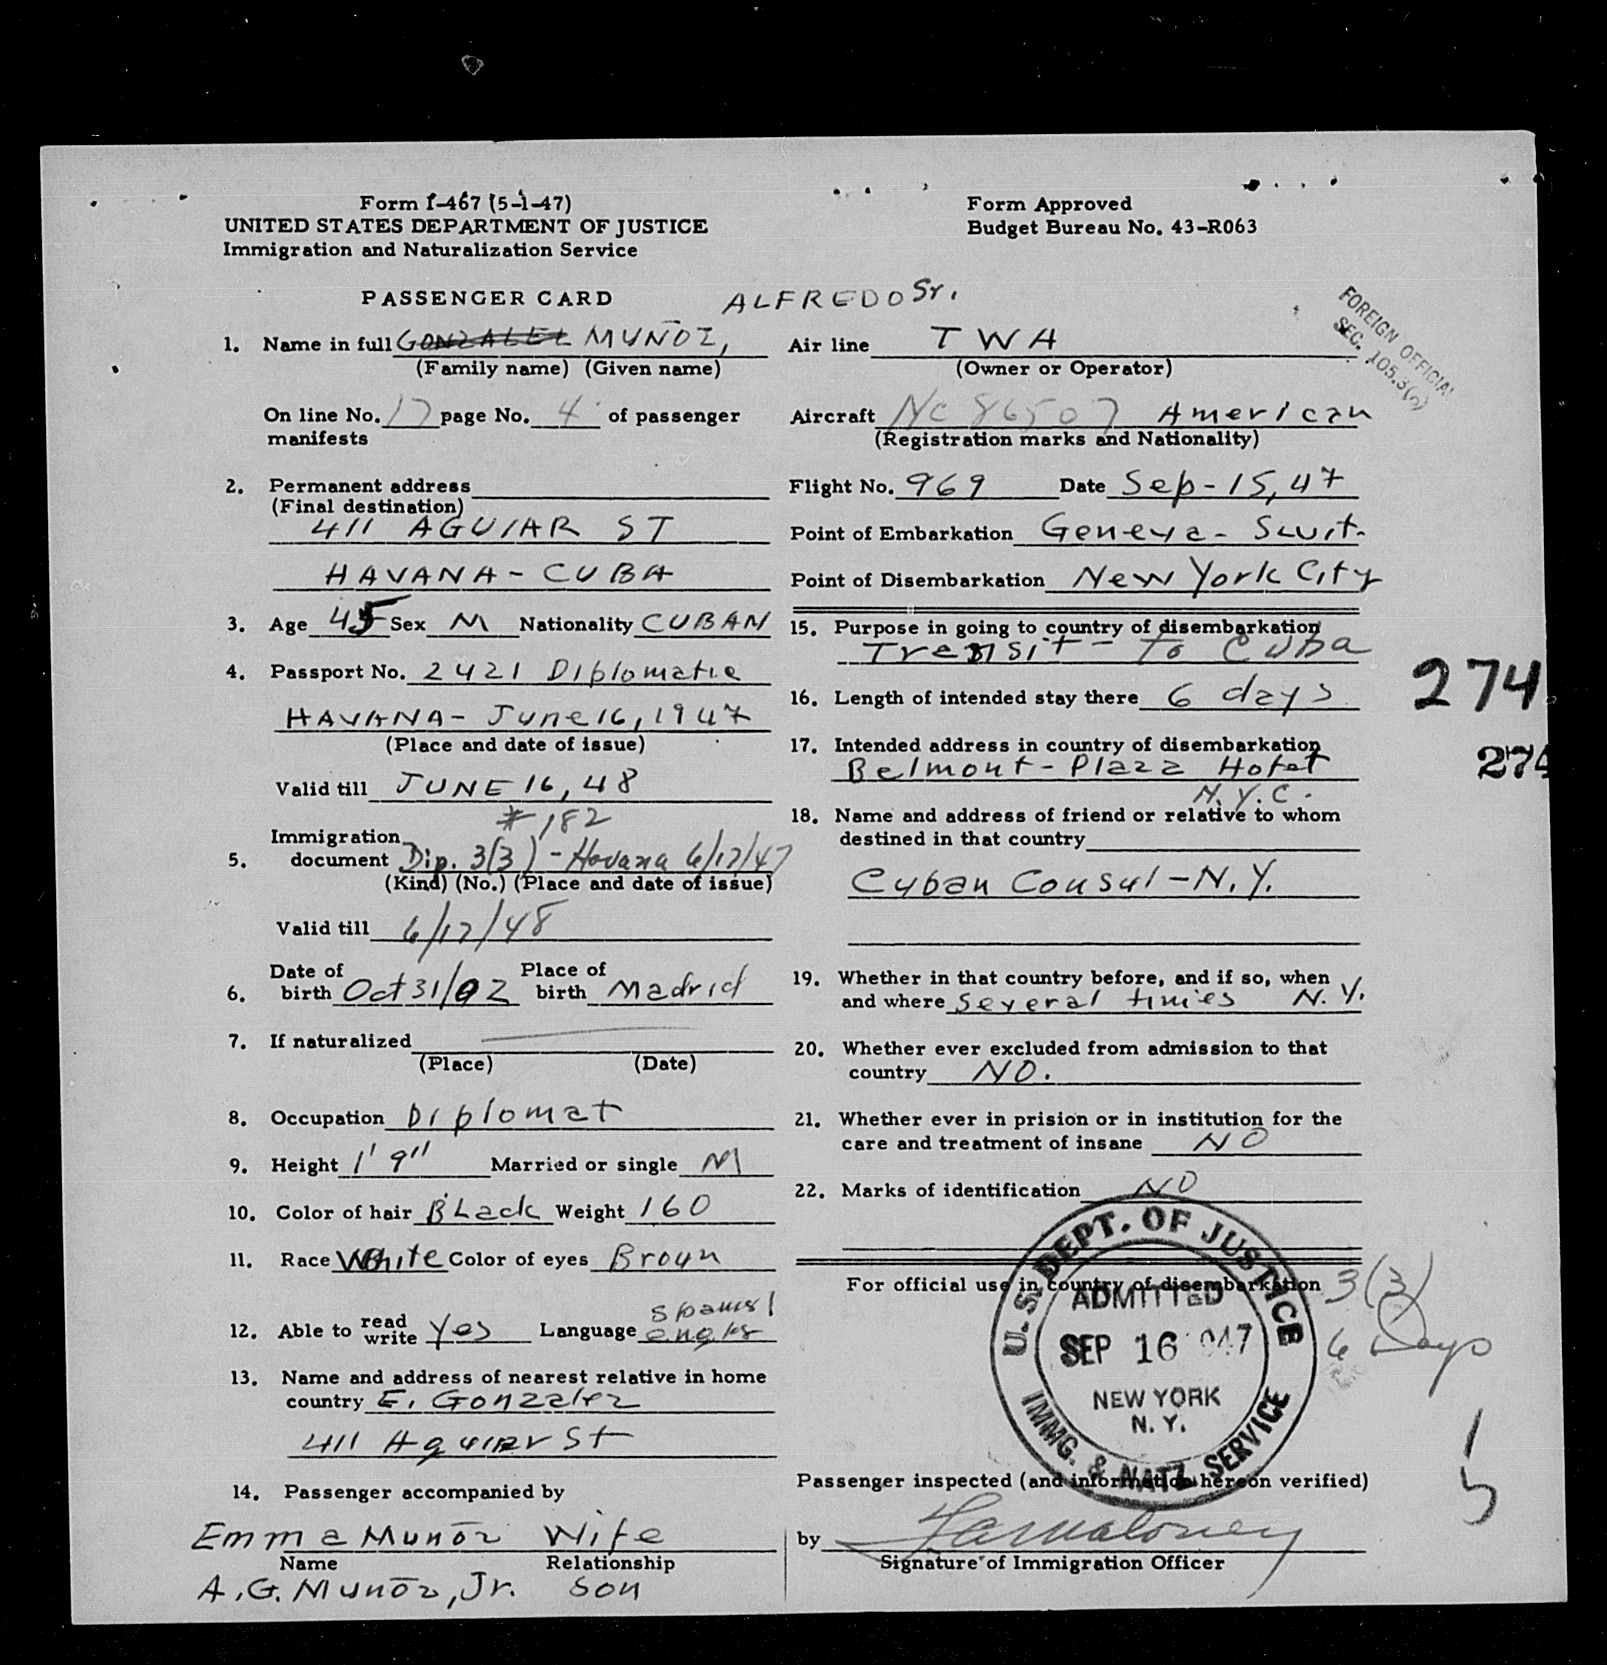 Form I-467 (5-1-47)
UNITED STATES DEPARTMENT OF JUSTICE
Immigration and Naturalization Service
Form Approved
Budget Bureau No. 43-R063
PASSENGER CARD
ALFREDO Sr.
FOREIGN OFFICIAL
SEC. 105.3(2)
1. Name in full GONZALEZ MUÑOZ,
(Family name) (Given name)
On line No. 17 page No. 4 of passenger
manifests
2. Permanent address
(Final destination)
411 AGUIAR ST
HAVANA - CUBA
3. Age 45 Sex M Nationality CUBAN
4. Passport No. 2421 Diplomatic
HAVANA - June 16, 1947
(Place and date of issue)
Valid till JUNE 16, 48
# 182
5. Immigration
document Dip. 3(3) - Havana 6/17/47
(Kind) (No.) (Place and date of issue)
Valid till 6/17/48
6. Date of
birth Oct 31/02 Place of
birth Madrid
7. If naturalized
(Place) (Date)
8. Occupation Diplomat
9. Height 1' 9" Married or single M
10. Color of hair BLack Weight 160
11. Race White Color of eyes Broun
12. Able to read
write Yes Language Spanis
engls
13. Name and address of nearest relative in home
country E. Gonzalez
411 Aguiar St
14. Passenger accompanied by
Emma Muñoz Wife
Name Relationship
A.G. Muñoz, Jr. Son
Air line TWA
(Owner or Operator)
Aircraft NC 86507 American
(Registration marks and Nationality)
Flight No. 969 Date Sep - 15, 47
Point of Embarkation Geneva - Swit.
Point of Disembarkation New York City
15. Purpose in going to country of disembarkation
Transit - To Cuba
16. Length of intended stay there 6 days
17. Intended address in country of disembarkation
Belmont - Plaza Hotel
N.Y.C.
18. Name and address of friend or relative to whom
destined in that country
Cuban Consul - N.Y.
19. Whether in that country before, and if so, when
and where Several times N.Y.
20. Whether ever excluded from admission to that
country NO.
21. Whether ever in prision or in institution for the
care and treatment of insane NO
22. Marks of identification NO
For official use in country of disembarkation
3(3)
6 Days
U.S. DEPT. OF JUSTICE
ADMITTED
SEP 16 1947
NEW YORK
N. Y.
IMMG. & NATZ. SERVICE
Passenger inspected (and information hereon verified)
by
Signature of Immigration Officer
274
274
1
5